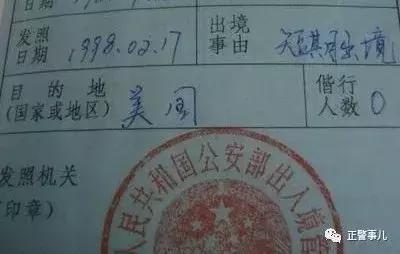 日期
发照
日期
1998.02.17
出境
事由
短期出境
目的地
(国家或地区)
美国
偕行
人数
0
发照机关
印章)
人民共和国公安部出入境管
正警事儿